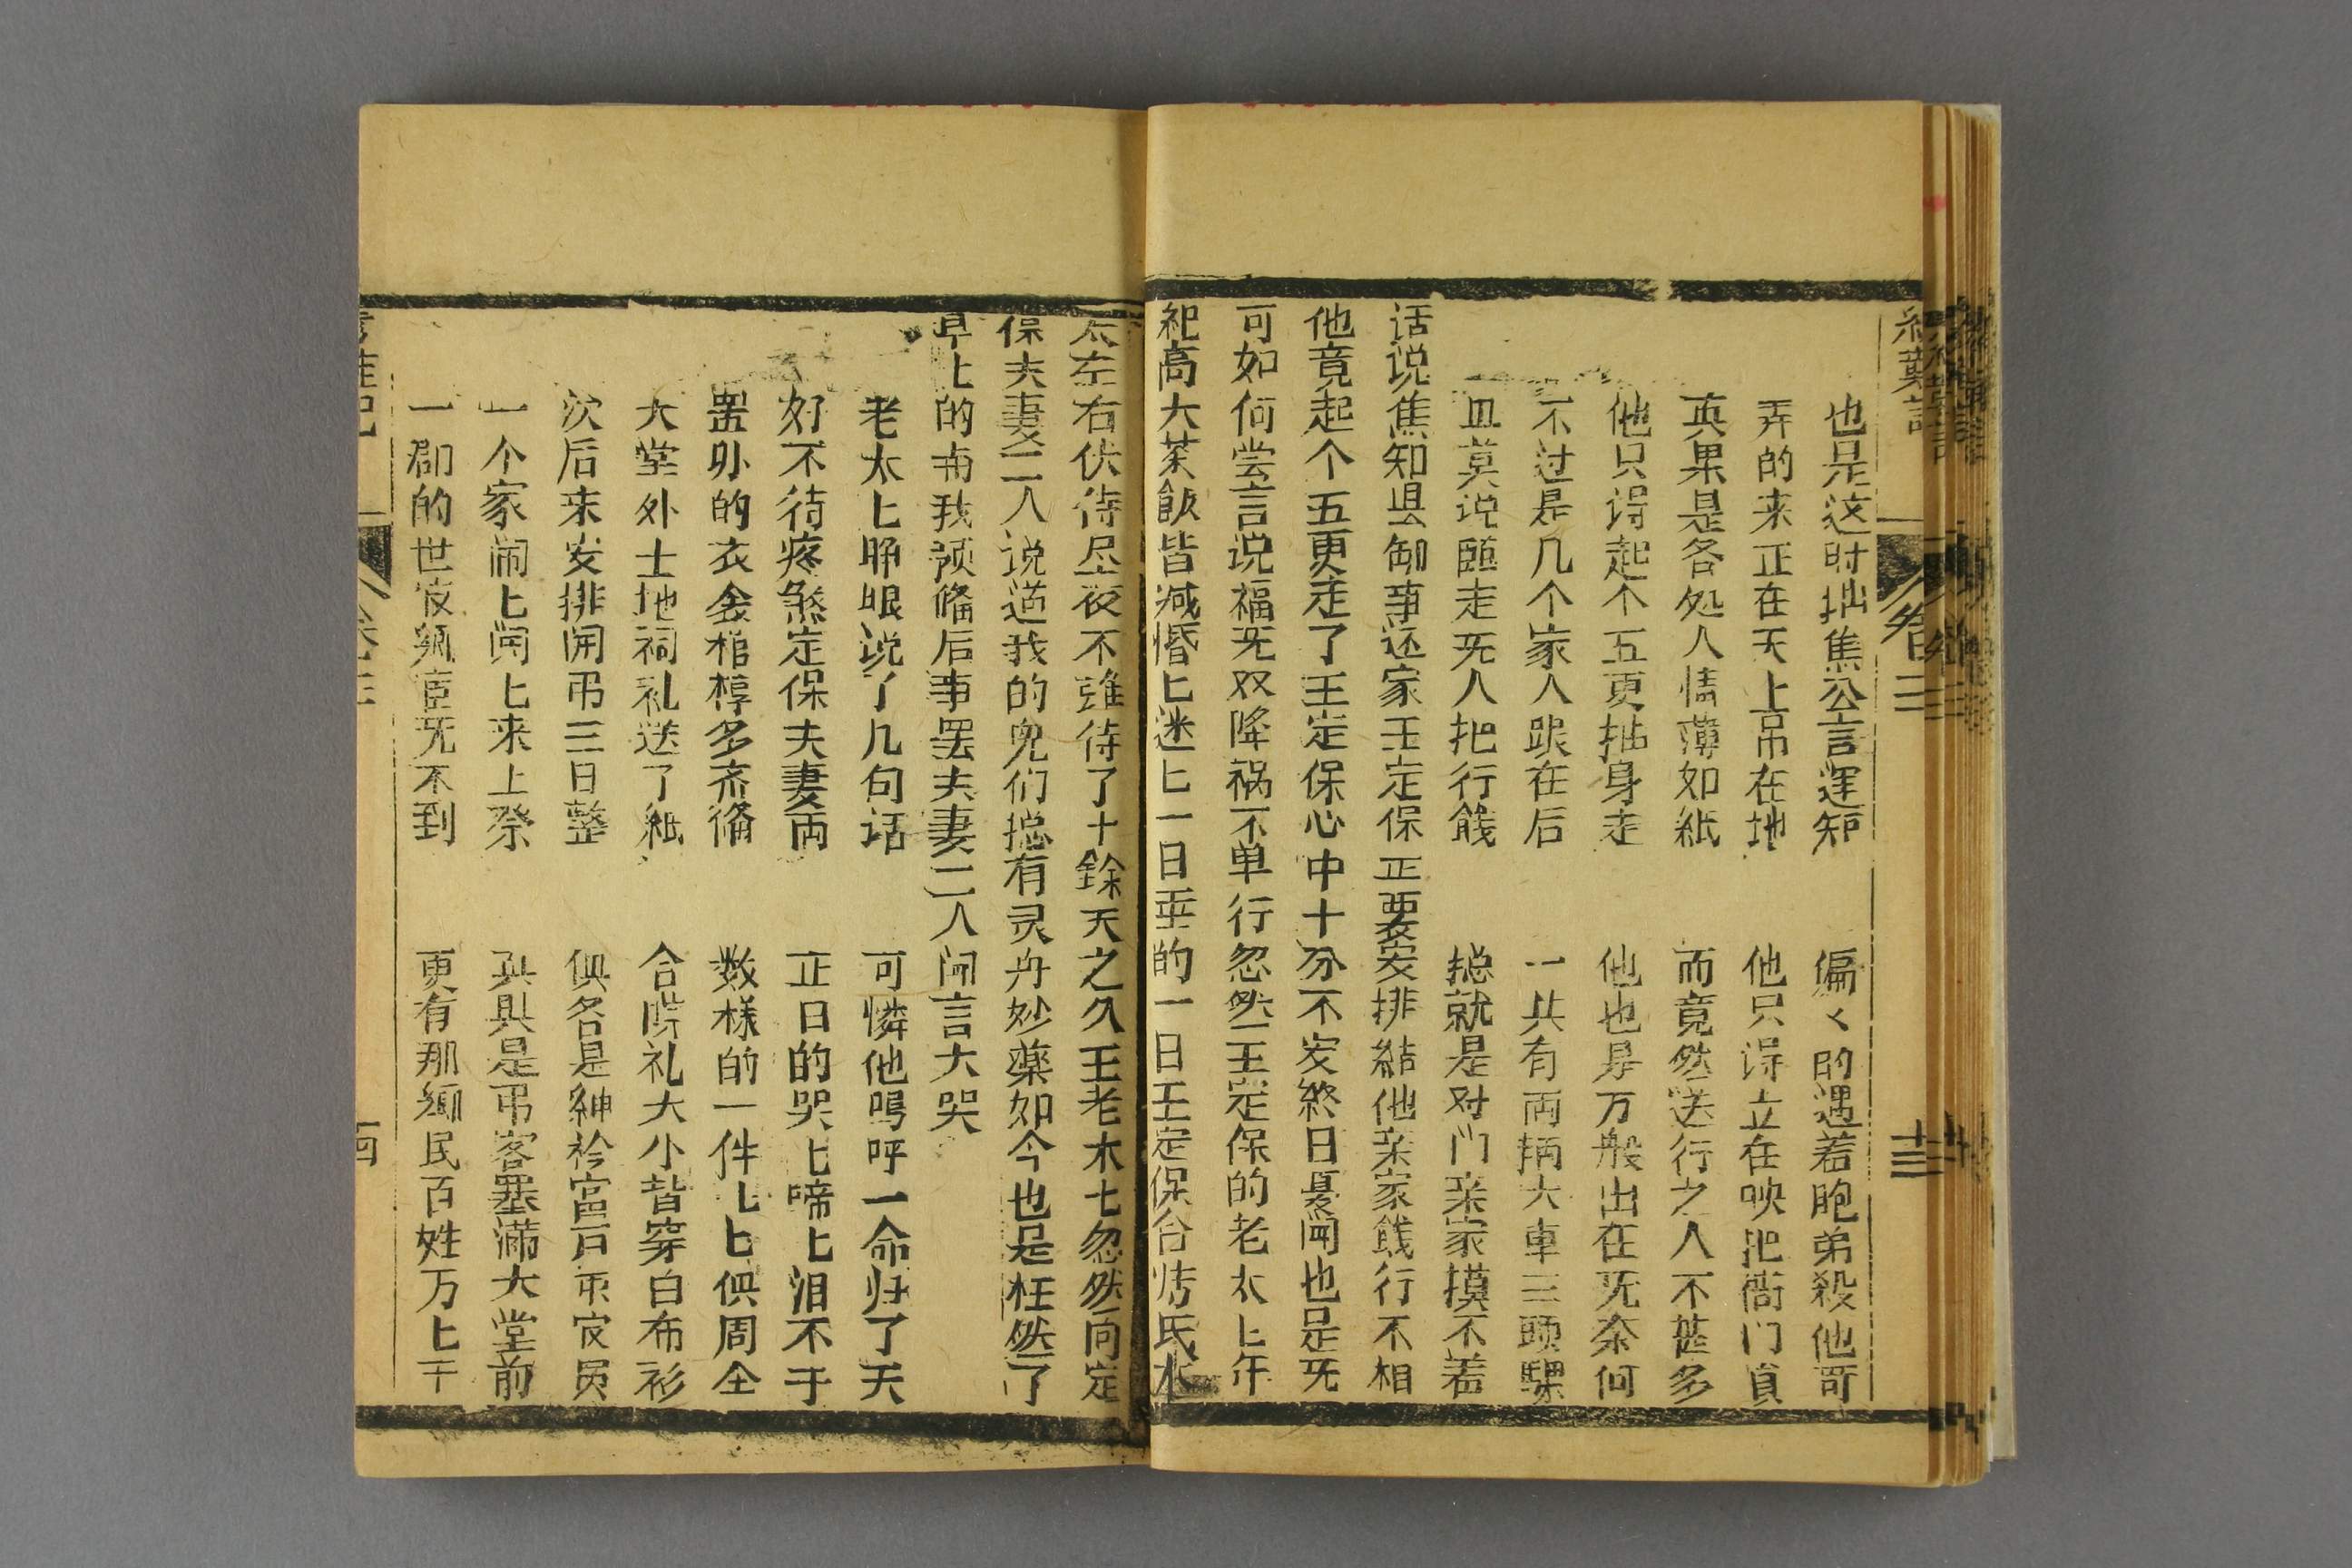 也是这时拙焦公言運知 偏〻的遇若胞弟殺他哥
弄的来正在天上吊在地 他只淂立在映把衙门負
真果是各処人情薄如紙 而竟然送行之人不甚多
他只淂起个五更抽身走 他也是万般出在旡奈何
不过是几个家人跟在后 一共有両辆大車三頭騾
且莫说臨走旡人把行餞 摠就是对门亲家摸不着
话说焦知县卸事还家王定保正要安排結他亲家餞行不相
他竟起个五更走了王定保心中十分不安終日憂闻也是旡
可如何尝言说福旡双降祸不单行忽然王定保的老太上年
祀高大茶飯皆减惛上迷上一日重的一日王定保合 氏水
太左右伏侍昼夜不 侍了十餘天之久王老太七忽然向定
保夫妻二人说道我的兒们摠有灵丹妙藥如今也是枉然了
早上的 我预偹后事罢夫妻二人闻言大哭
老太上睁眼说了几句话 可憐他嗚呼一命归了天
好不待疼煞定保夫妻両 正日的哭上啼上泪不干
罢외的衣衾棺椁多齐備 数様的一件七上俱周全
大堂外土地祠礼送了紙 合 礼大小皆穿白布衫
次后来安排開弔三日整 俱各是紳衿富户求官員
一个家闹上闹上来上祭 真真是弔客塞满大堂前
一郡的世宦 宦旡不到 更有那 民百姓万上千
卷二
十三